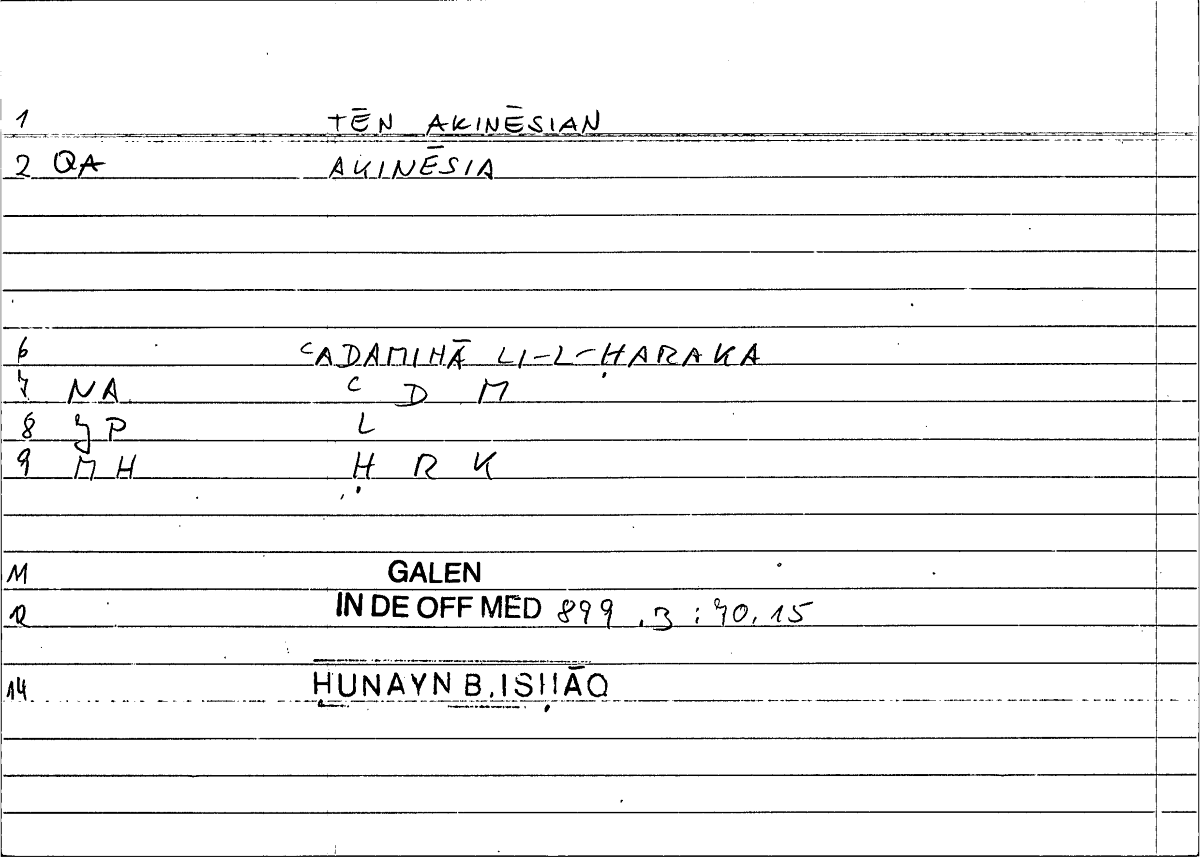 1 TĒN AKINĒSIAN
2 QA AKINĒSIA
6 ʿADAMIHĀ LI-L-ḤARAKA
7 NA ʿ D M
8 JP L
9 MH Ḥ R K
11 GALEN
12 IN DE OFF MED 899 .3 : 70.15
14 ḤUNAYN B. ISḤĀQ